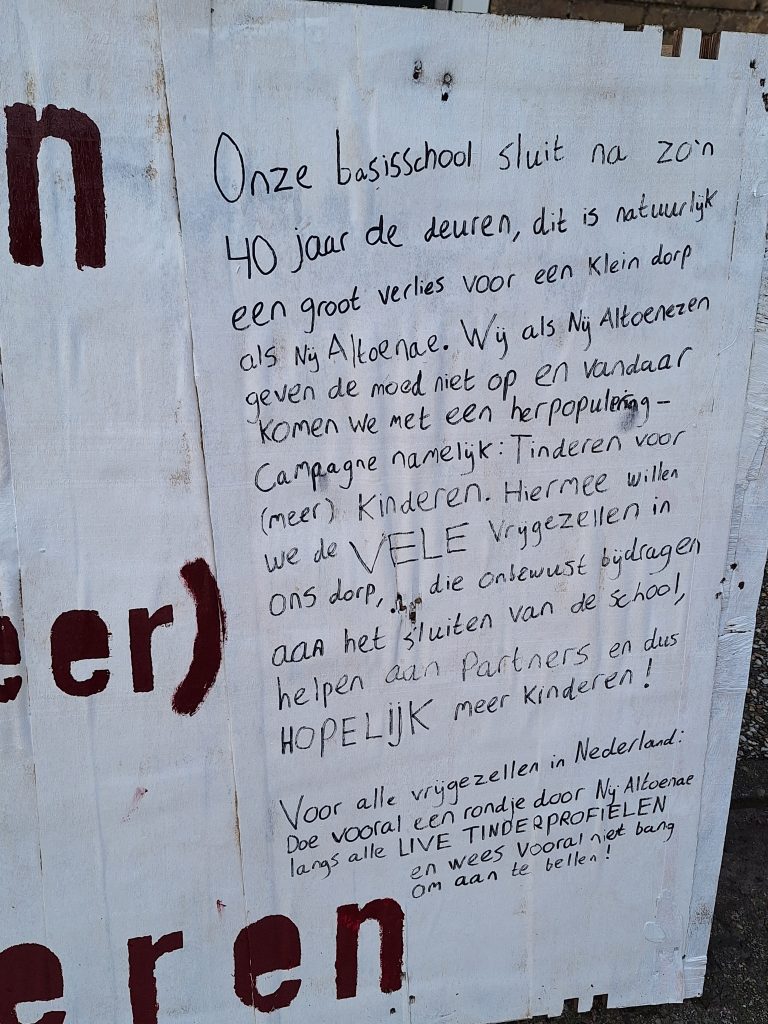 n
eer)
eren
Onze basisschool sluit na zo'n
40 jaar de deuren, dit is natuurlijk
een groot verlies voor een klein dorp
als Nij Altoenae. Wij als Nij Altoenezen
geven de moed niet op en vandaar
komen we met een herpopulering-
campagne namelijk: Tinderen voor
(meer) kinderen. Hiermee willen
we de VELE vrijgezellen in
ons dorp, die onbewust bijdragen
aan het sluiten van de school,
helpen aan partners en dus
HOPELIJK meer kinderen!
Voor alle vrijgezellen in Nederland:
Doe vooral een rondje door Nij Altoenae
langs alle LIVE TINDERPROFIELEN
en wees vooral niet bang
om aan te bellen!